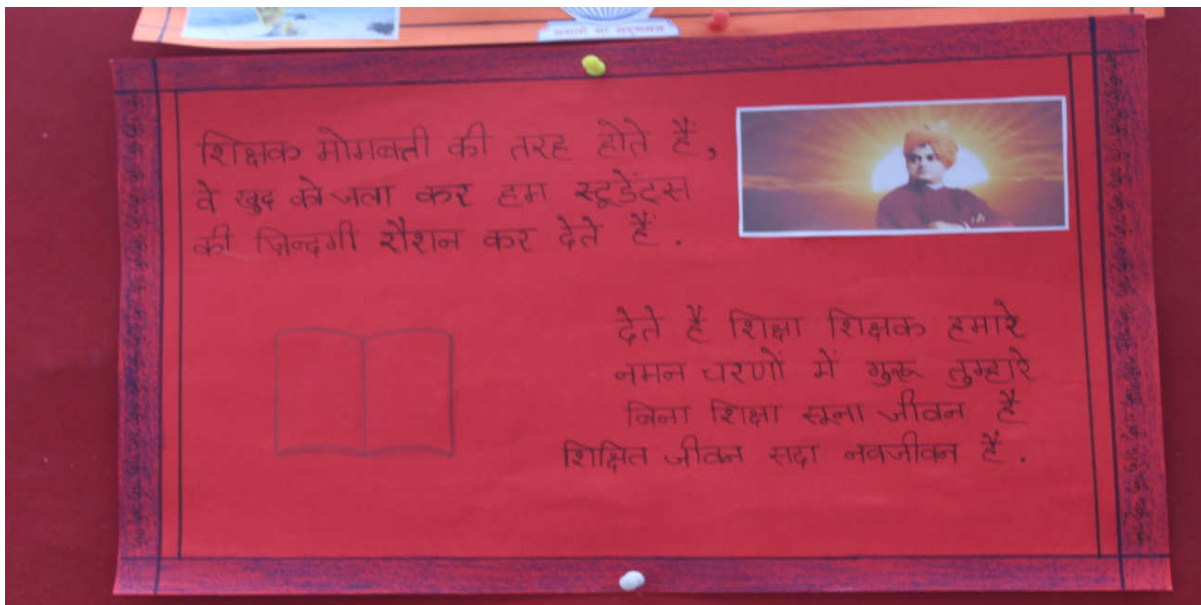 शिक्षक मोमबत्ती की तरह होते हैं,
वे खुद को जला कर हम स्टूडेंट्स
की ज़िन्दगी रौशन कर देते हैं.
देते हैं शिक्षा शिक्षक हमारे
नमन चरणों में गुरू तुम्हारे
बिना शिक्षा सूना जीवन हैं
शिक्षित जीवन सदा नवजीवन हैं.